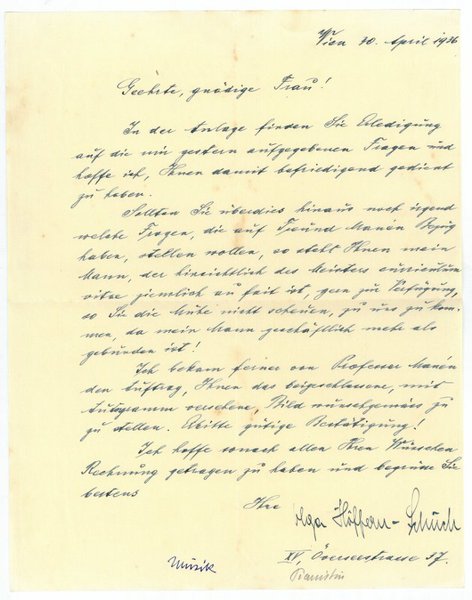 Wien 30. April 1936
Geehrte, gnädige Frau!
In der Anlage finden Sie Erledigung
auf die mir gestern aufgegebenen Fragen und
hoffe ich, Ihnen damit befriedigend gedient
zu haben.
Sollten Sie überdies hinaus noch irgend
welche Fragen, die auf Freund Manén Bezug
haben, stellen wollen, so steht Ihnen mein
Mann, der hinsichtlich des Meisters curriculum
vitae ziemlich au fait ist, gern zur Verfügung,
so Sie die Mühe nicht scheuen, zu uns zu kom-
men, da mein Mann geschäftlich mehr als
gebunden ist!
Ich bekam ferner von Professor Manén
den Auftrag, Ihnen das beigeschlossene, mit
Autogramm versehene, Bild wunschgemäss zu
zu stellen. Erbitte gütige Bestätigung!
Ich hoffe sonach allen Ihren Wünschen
Rechnung getragen zu haben und begrüsse Sie
bestens
Ihre
Olga Höffern-Schüch
XV, Överseestrasse 57.
Pianistin
Musik